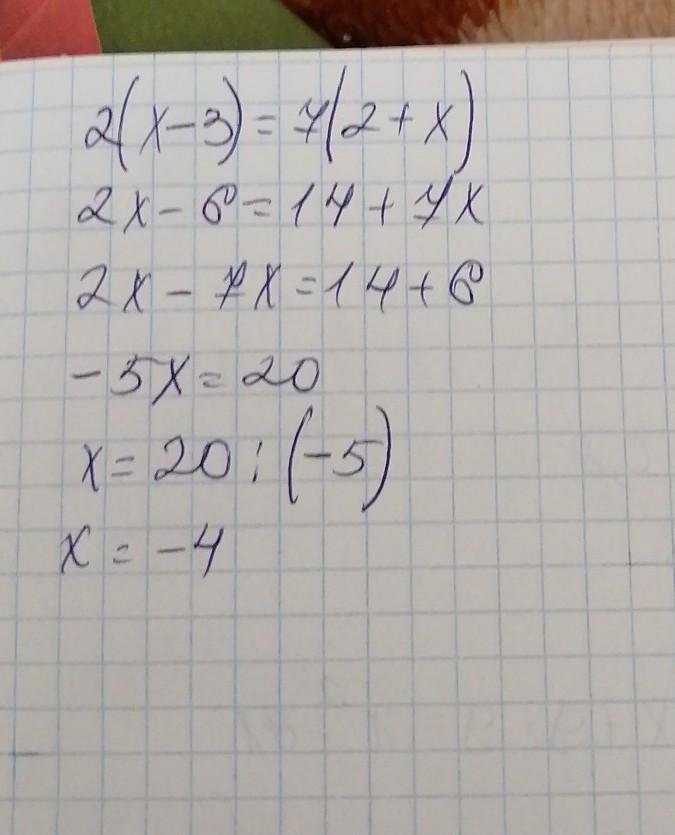 2(x-3)=7(2+x)
2x-6=14+7x
2x-7x=14+6
-5x=20
x=20:(-5)
x=-4